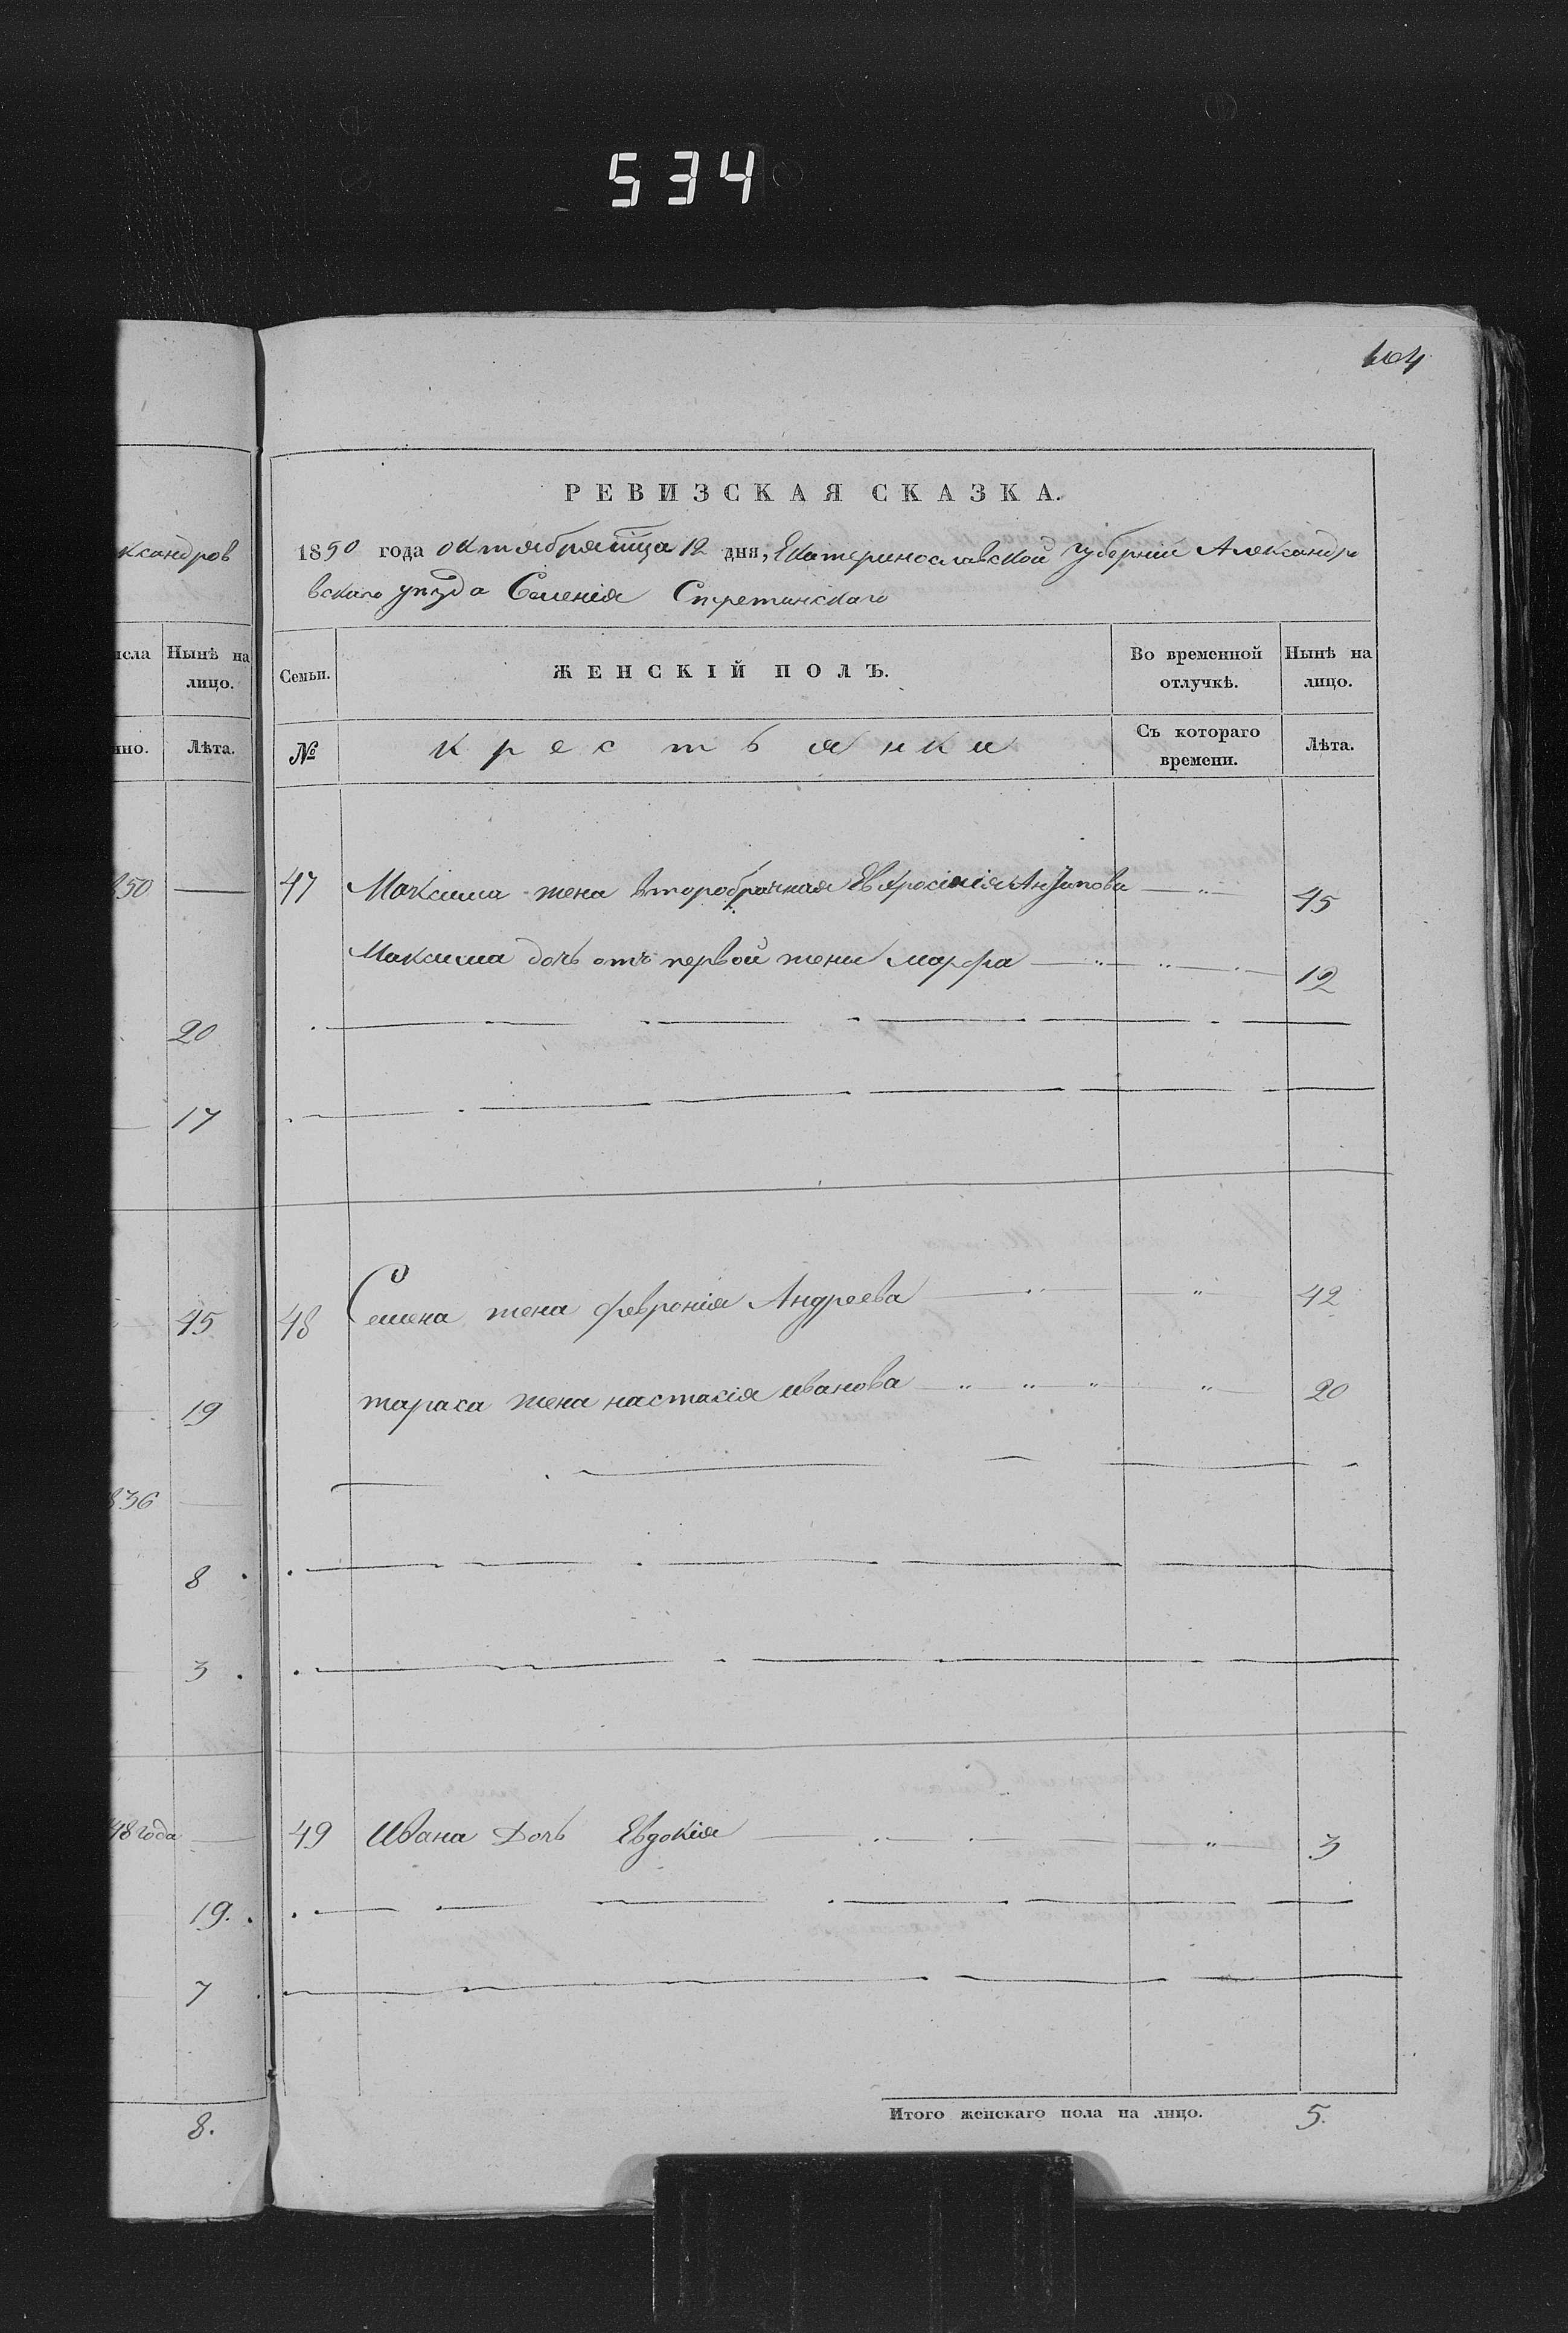 534
104
РЕВИЗСКАЯ СКАЗКА.
1850 года октября мца 12 дня, Екатеринославской губерніи Александро
вскаго уезда Селенія Стретинскаго
ксандров
исла Нынѣ на лицо.
нно. Лѣта.
Семьи. ЖЕНСКІЙ ПОЛЪ. Во временной отлучкѣ. Нынѣ на лицо.
№ крестьянки Съ котораго времени. Лѣта.
850
47 Максима жена второбрачная Евфросинія Антипова 45
Максима дочь отъ первой жены марфа 12
20
17
45 48 Семена жена февронія Андреева 42
19 тараса жена настасія иванова 20
836
8
3
48 года 49 Ивана Дочь Евдокія 3
19.
7
Итого женскаго пола на лицо. 5.
8.